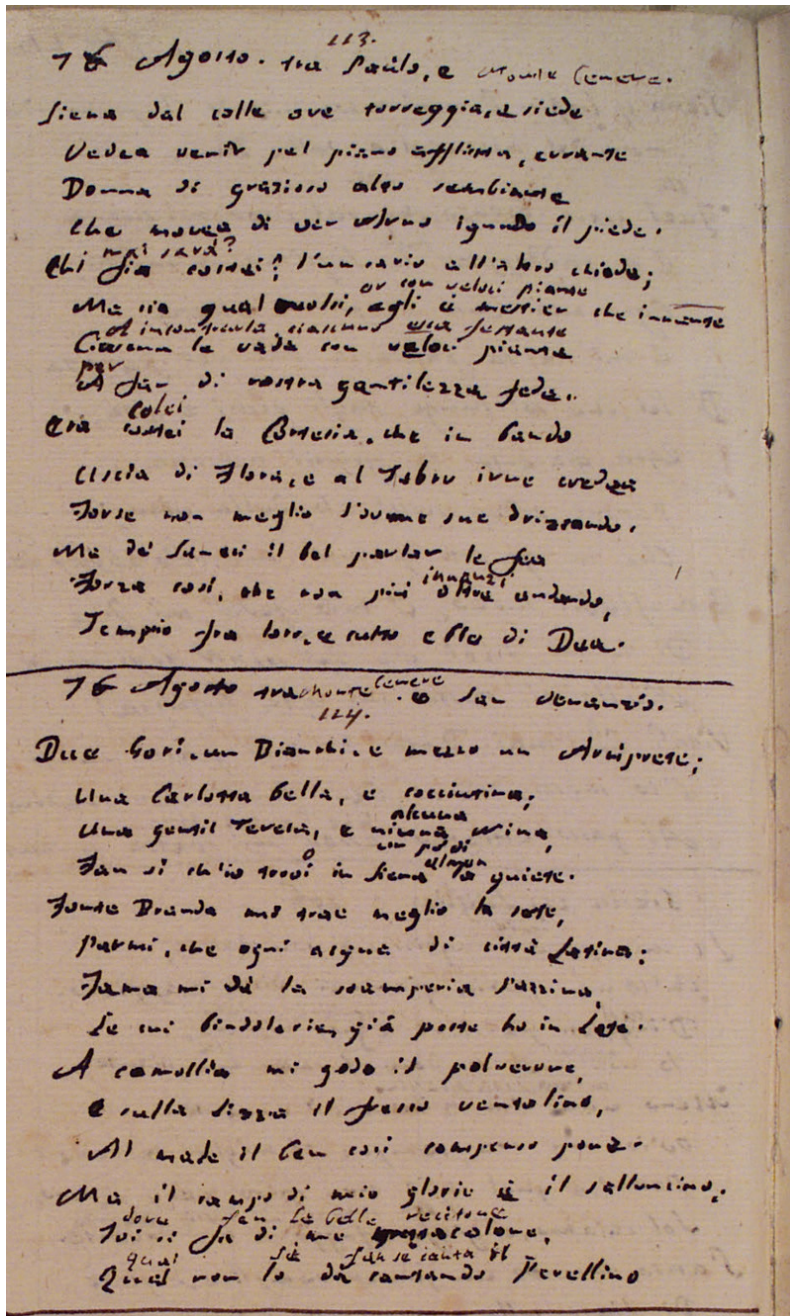 113.
16 Agosto. tra Paulo, e Monte Cenere.
Siena dal colle ove torreggia, e siede
Vedea venir pel piano afflitta, errante
Donna di grazioso alto sembiante
Che movea di ver Arno ignudo il piede.
mai sarà?
Chi fia costei? l'un savio all'altro chiede;
or con veloci piante
Ma sia qual vuolsi, egli è mestier che innante
ad incontrarla ciascuno era festante
Ciascun le vada con veloci piante
per
A far di nostra gentilezza fede.
colei
Era costei la Cortesia, che in bando
Uscia di Flora, e al Tebro irne credea
Forse non meglio l'orme sue drizzando.
Ma de' Sanesi il bel parlar le fea
innanzi
Forza così, che non più oltre andando,
Tempio fra loro, e culto ebbe di Dea.
16 Agosto tra Monte Cenere e San Venanzio.
114.
Due Gori, un Bianchi, e mezzo un Arciprete;
Una Carlotta bella, e cocciutina;
alcuna
Una gentil Teresa, e Nina,
un po' di
Fan sì ch'io trovo in Siena almen la quiete.
Fonte Branda mi trae meglio la sete,
Parmi, che ogni acqua di città Latina;
Fama mi dà la stamperia Pazzina,
Le cui bindolerie, già poste ho in Lete.
A camollia mi godo il polverone,
E sulla Lizza il fresco ventolino,
Al male il ben così compenso pone.
Ma il campo di mie glorie è il salloncino,
dove fan le belle
Ivi si fa di me
qual
Qual non lo dà cantando Pevellino